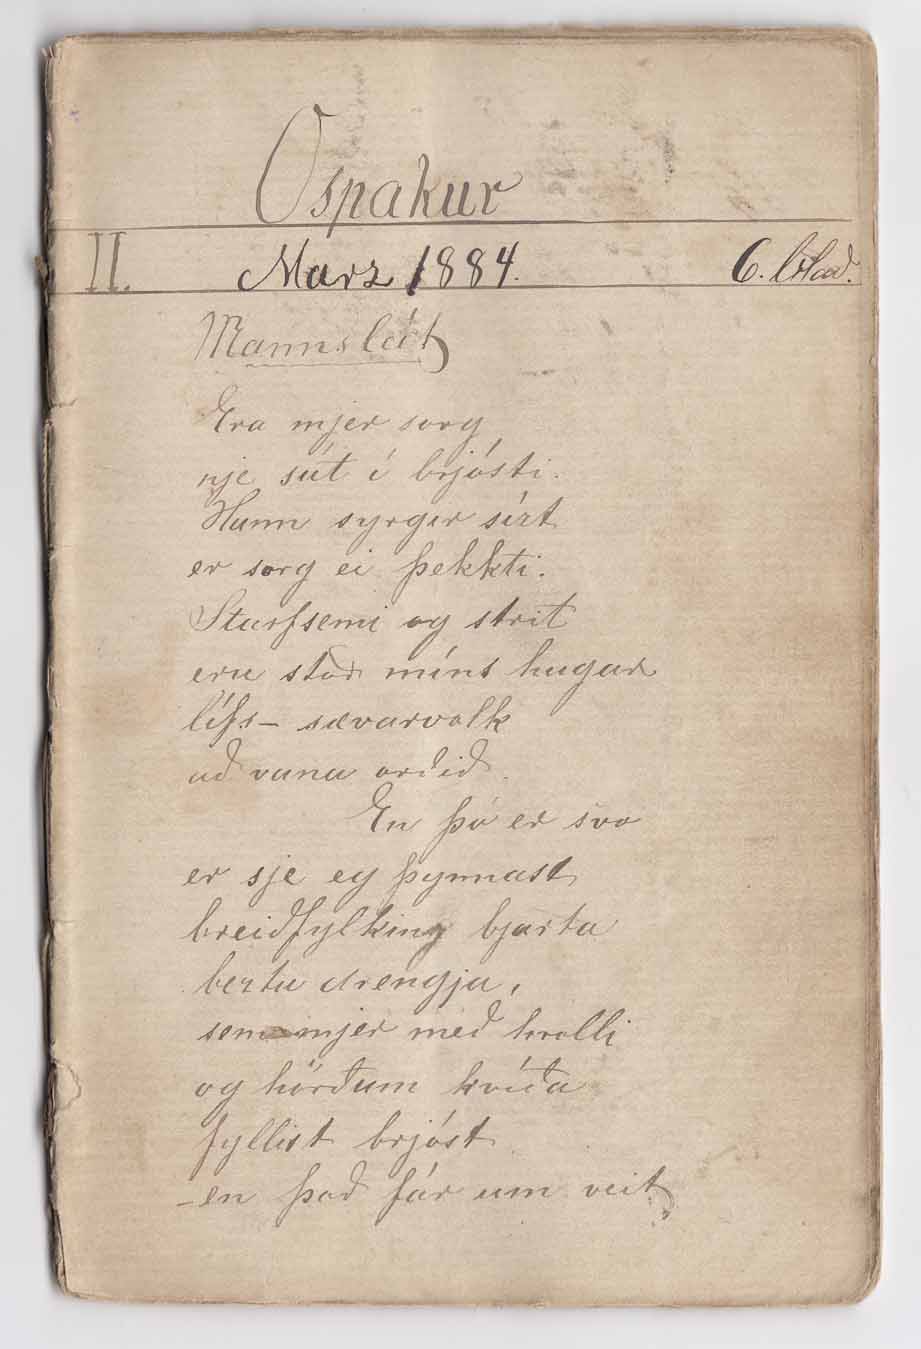 Ospakur
II. Marz 1884. 6. blað.
Mannslát
Era mjer sorg
nje sút í brjósti.
Hann syrgir sízt
er sorg ei þekkti.
Starfsemi og strit
eru stoð míns hugar
lífs- sævarvolk
að vana orðið.
En þó er svo
er sje eg þynnast
breiðfylking bjarta
beztu drengja,
sem mjer með hrolli
og hörðum kvíða
fyllist brjóst
- en það fár um veit